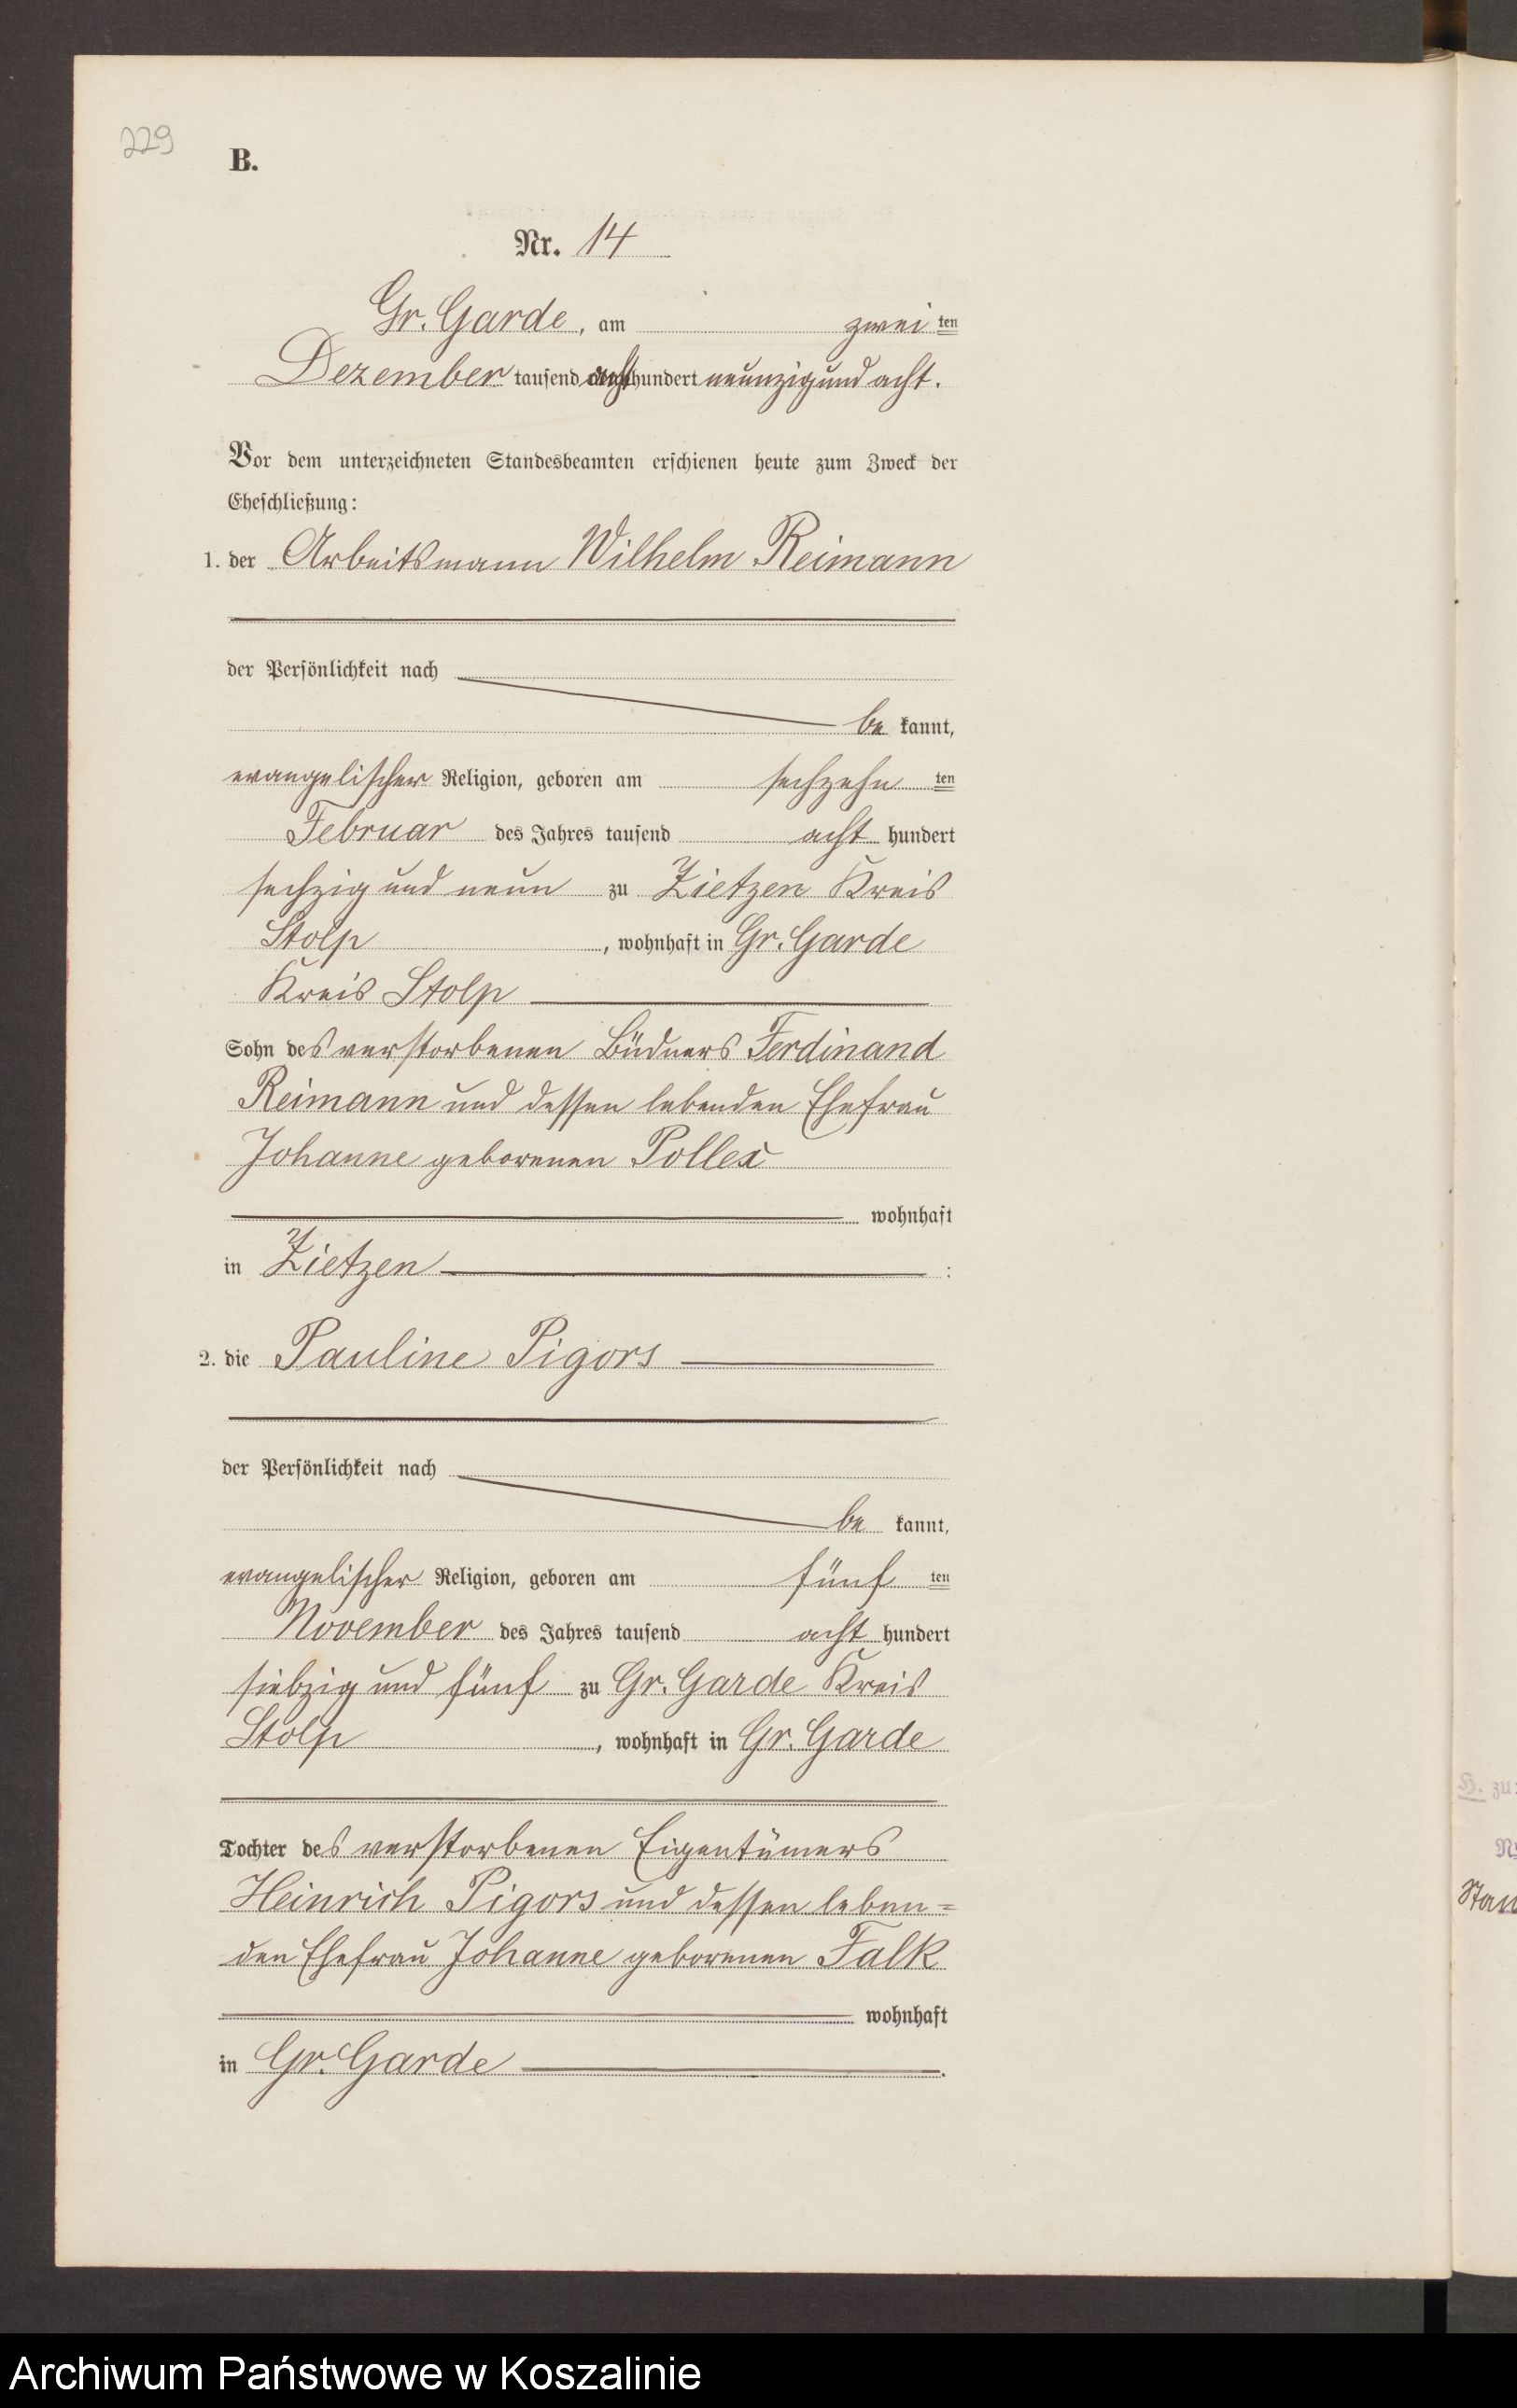 229
B.
Nr. 14
Gr. Garde, am zwei ten
Dezember tausend acht hundert neunzig und acht.
Vor dem unterzeichneten Standesbeamten erschienen heute zum Zweck der
Eheschließung:
1. der Arbeitsmann Wilhelm Reimann
der Persönlichkeit nach
be kannt,
evangelischer Religion, geboren am sechzehn ten
Februar des Jahres tausend acht hundert
sechzig und neun zu Zietzen Kreis
Stolp, wohnhaft in Gr. Garde
Kreis Stolp
Sohn des verstorbenen Büdners Ferdinand
Reimann und dessen lebenden Ehefrau
Johanne geborenen Pollex
wohnhaft
in Zietzen :
2. die Pauline Pigors
der Persönlichkeit nach
be kannt,
evangelischer Religion, geboren am fünf ten
November des Jahres tausend acht hundert
siebzig und fünf zu Gr. Garde Kreis
Stolp, wohnhaft in Gr. Garde
Tochter des verstorbenen Eigentümers
Heinrich Pigors und dessen leben=
den Ehefrau Johanne geborenen Falk
wohnhaft
in Gr. Garde .
H. zu:
Stan
Archiwum Państwowe w Koszalinie